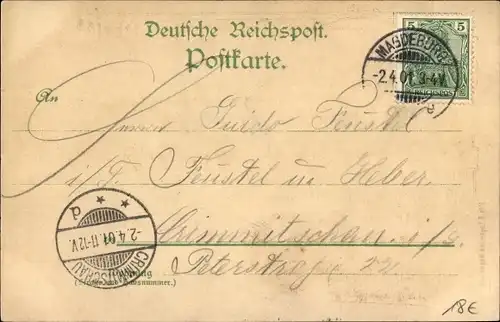 Deutsche Reichspost.
Postkarte.
5 5
REICHSPOST
MAGDEBURG
-2.4.01 3-4V.
An
Herrn Guido Feustel
i/F. Feustel u. Heber.
Crimmitschau i/S.
Peterstraße 22.
CRIMMITSCHAU
-2.4.01.11-12V.
d
Wohnung
(Straße und Hausnummer.)
18€